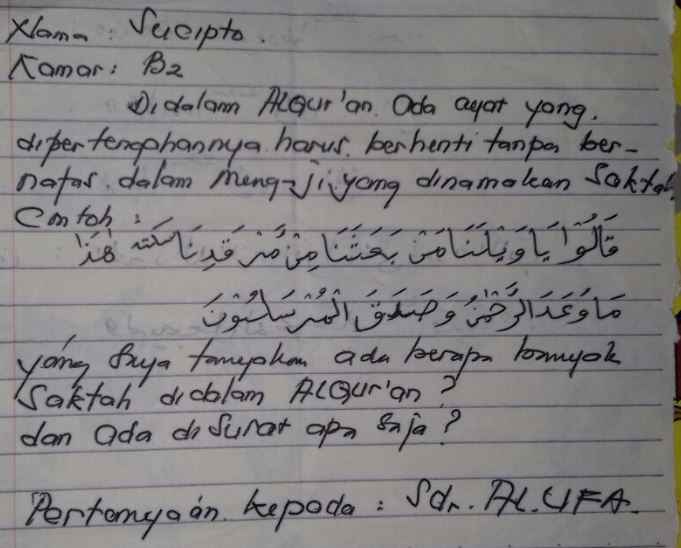 Nama : Sucipto.
Kamar : B2
Didalam ALQur'an. Ada ayat yang.
dipertengahannya. harus. berhenti tanpa ber-
nafas. dalam meng-ji, yang dinamakan Saktah.
Contoh :
قَالُوْا يَا وَيْلَنَا مَنْ بَعَثَنَا مِنْ مَّرْقَدِنَا سكته هٰذَا
مَا وَعَدَ الرَّحْمٰنُ وَصَدَقَ الْمُرْسَلُوْنَ
yang saya tanyakan ada berapa banyak
Saktah didalam ALQur'an ?
dan ada disurat apa saja ?
Pertanyaan. kepada : Sdr. AL. UFA.